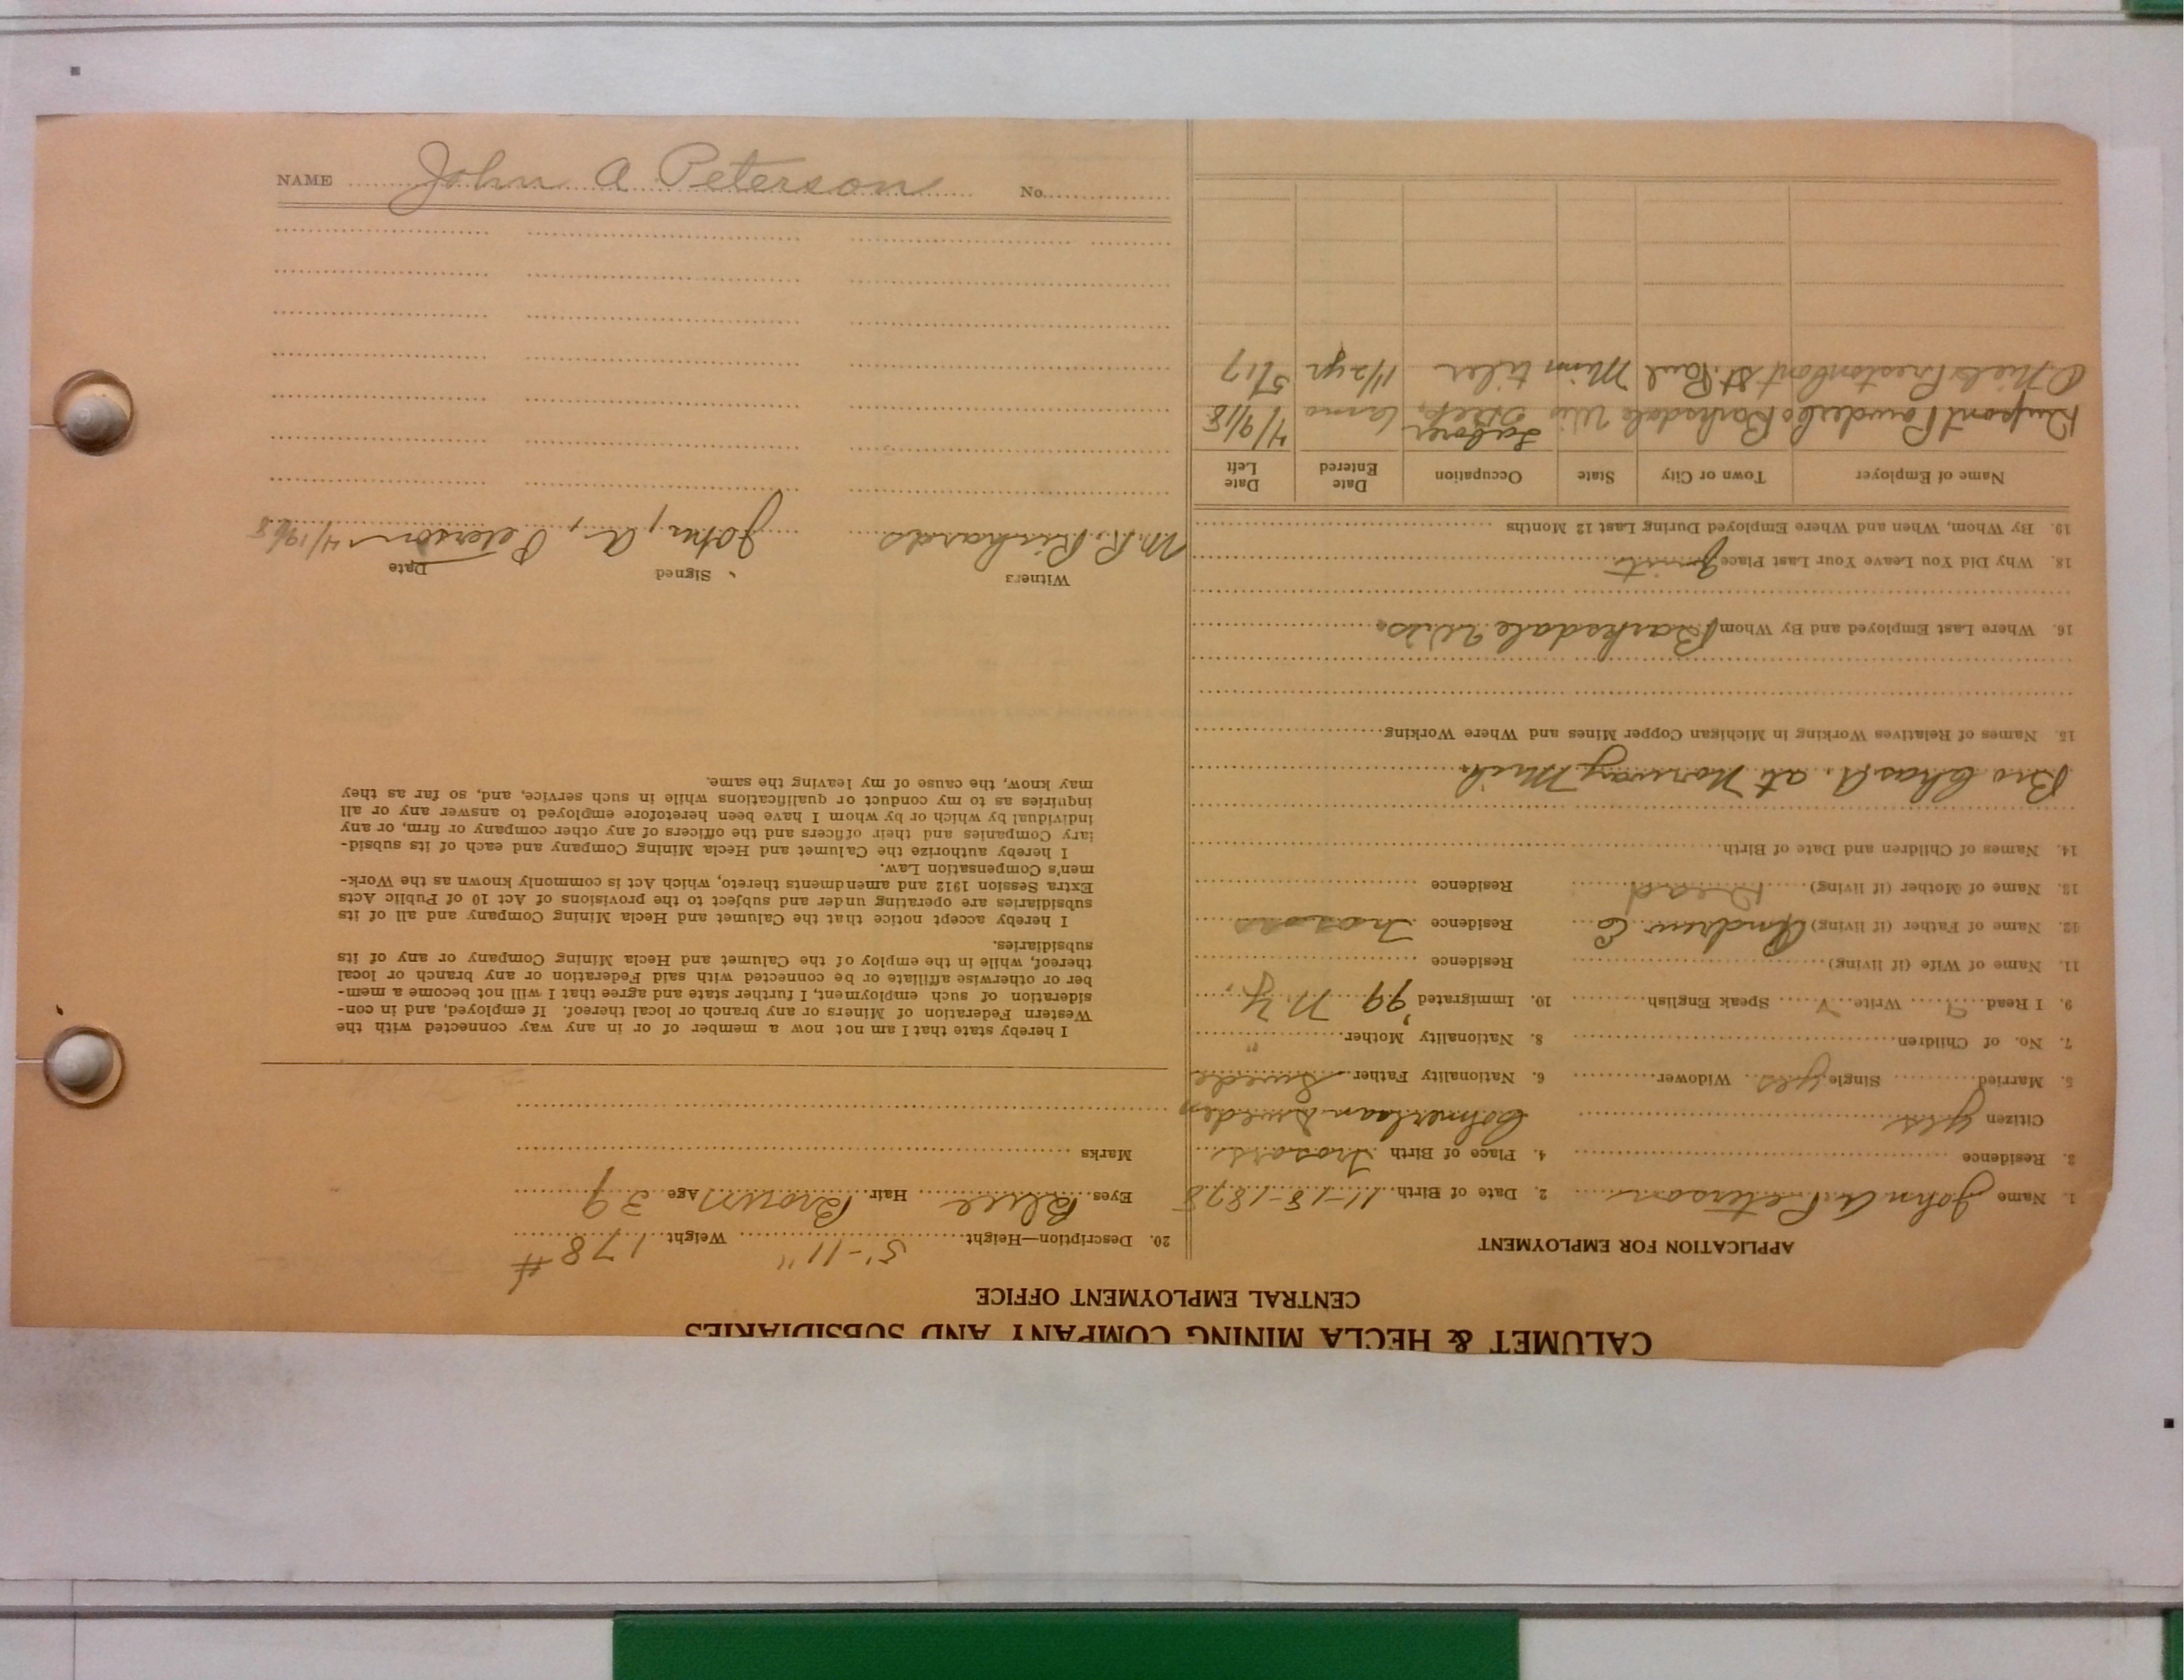 CALUMET & HECLA MINING COMPANY AND SUBSIDIARIES
CENTRAL EMPLOYMENT OFFICE
APPLICATION FOR EMPLOYMENT
1. Name John A. Peterson 2. Date of Birth 11-18-1878
3. Residence 4. Place of Birth
Citizen yes Sweden
5. Married Single yes Widower 6. Nationality Father Swede
7. No. of Children 8. Nationality Mother "
9. I Read Write Speak English 10. Immigrated '99 N.Y.
11. Name of Wife (if living) Residence
12. Name of Father (if living) Andrew Residence
13. Name of Mother (if living) Dead Residence
14. Names of Children and Date of Birth
Bro Chas A. at Norway Mich.
15. Names of Relatives Working in Michigan Copper Mines and Where Working
16. Where Last Employed and By Whom Barksdale Wis.
18. Why Did You Leave Your Last Place quit
19. By Whom, When and Where Employed During Last 12 Months
Name of Employer Town or City State Occupation Date Entered Date Left
Dupont Powder Co Barksdale Wis Laborer 4/9/18
St. Paul Minn tiler 1 1/2 yr 5/17
20. Description—Height 5'-11" Weight 178#
Eyes Blue Hair Brown Age 39
Marks
I hereby state that I am not now a member of or in any way connected with the
Western Federation of Miners or any branch or local thereof. If employed, and in con-
sideration of such employment, I further state and agree that I will not become a mem-
ber or otherwise affiliate or be connected with said Federation or any branch or local
thereof, while in the employ of the Calumet and Hecla Mining Company or any of its
subsidiaries.
I hereby accept notice that the Calumet and Hecla Mining Company and all of its
subsidiaries are operating under and subject to the provisions of Act 10 of Public Acts
Extra Session 1912 and amendments thereto, which Act is commonly known as the Work-
men's Compensation Law.
I hereby authorize the Calumet and Hecla Mining Company and each of its subsid-
iary Companies and their officers and the officers of any other company or firm, or any
individual by which or by whom I have been heretofore employed to answer any or all
inquiries as to my conduct or qualifications while in such service, and, so far as they
may know, the cause of my leaving the same.
Witness Signed Date
M.R. Richards John, A, Peterson 4/19/18
NAME John A Peterson No.